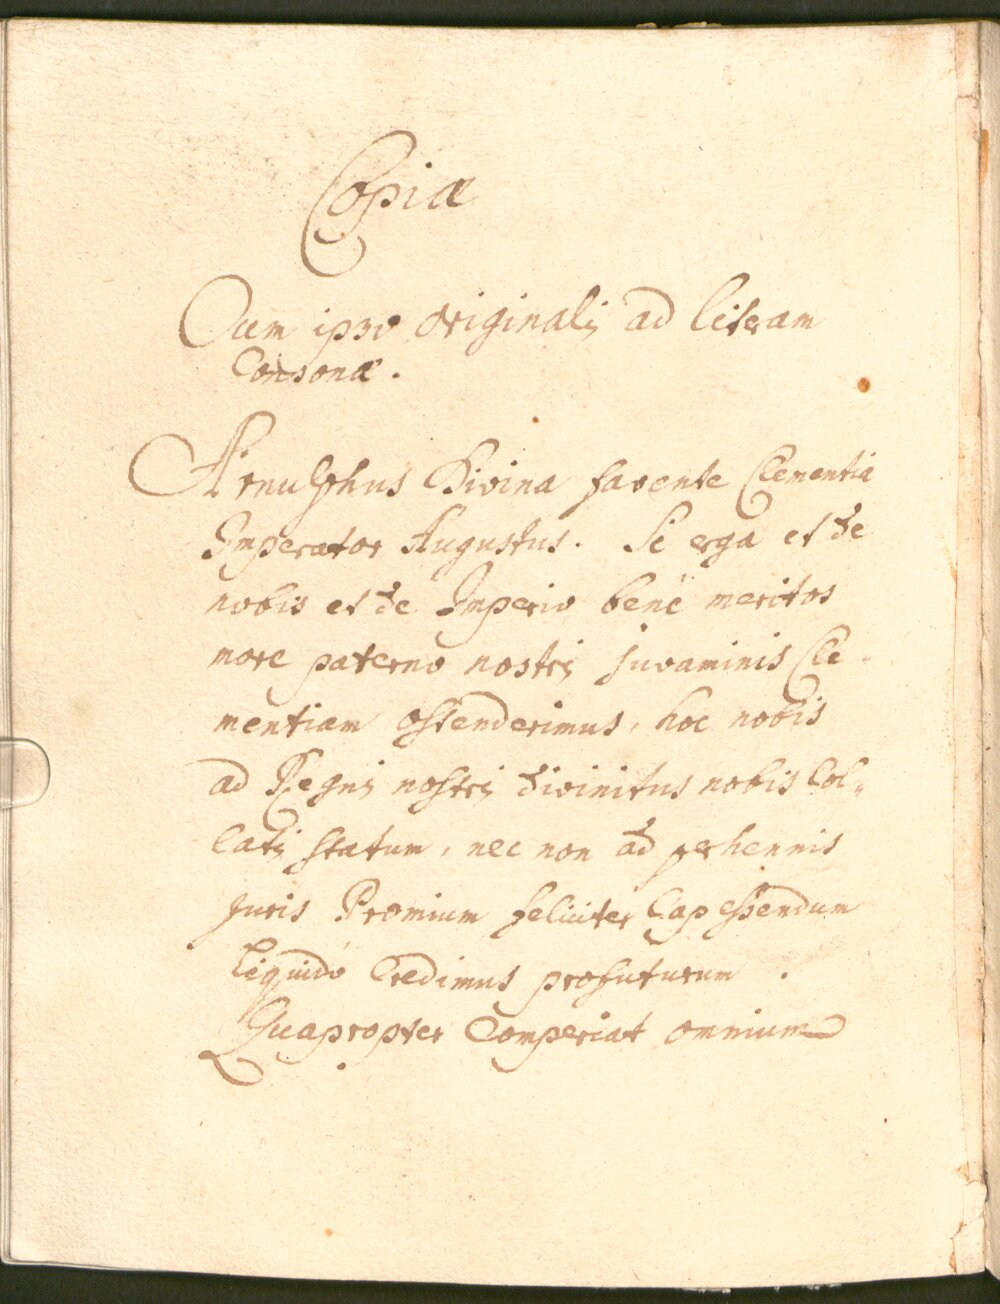 Copiæ
Cum ipso originali ad literam
Consonæ.
Arnulphus Divina favente Clementia
Imperator Augustus. Si erga et de
nobis et de Imperio benè meritos
more paterno nostri juvaminis Cle-
mentiam ostenderimus, hoc nobis
ad Regni nostri divinitus nobis Col-
lati statum, nec non ad perhennis
Juris Promium feliciter Capessendum
liquidò Credimus profuturum.
Quapropter Comperiat omnium